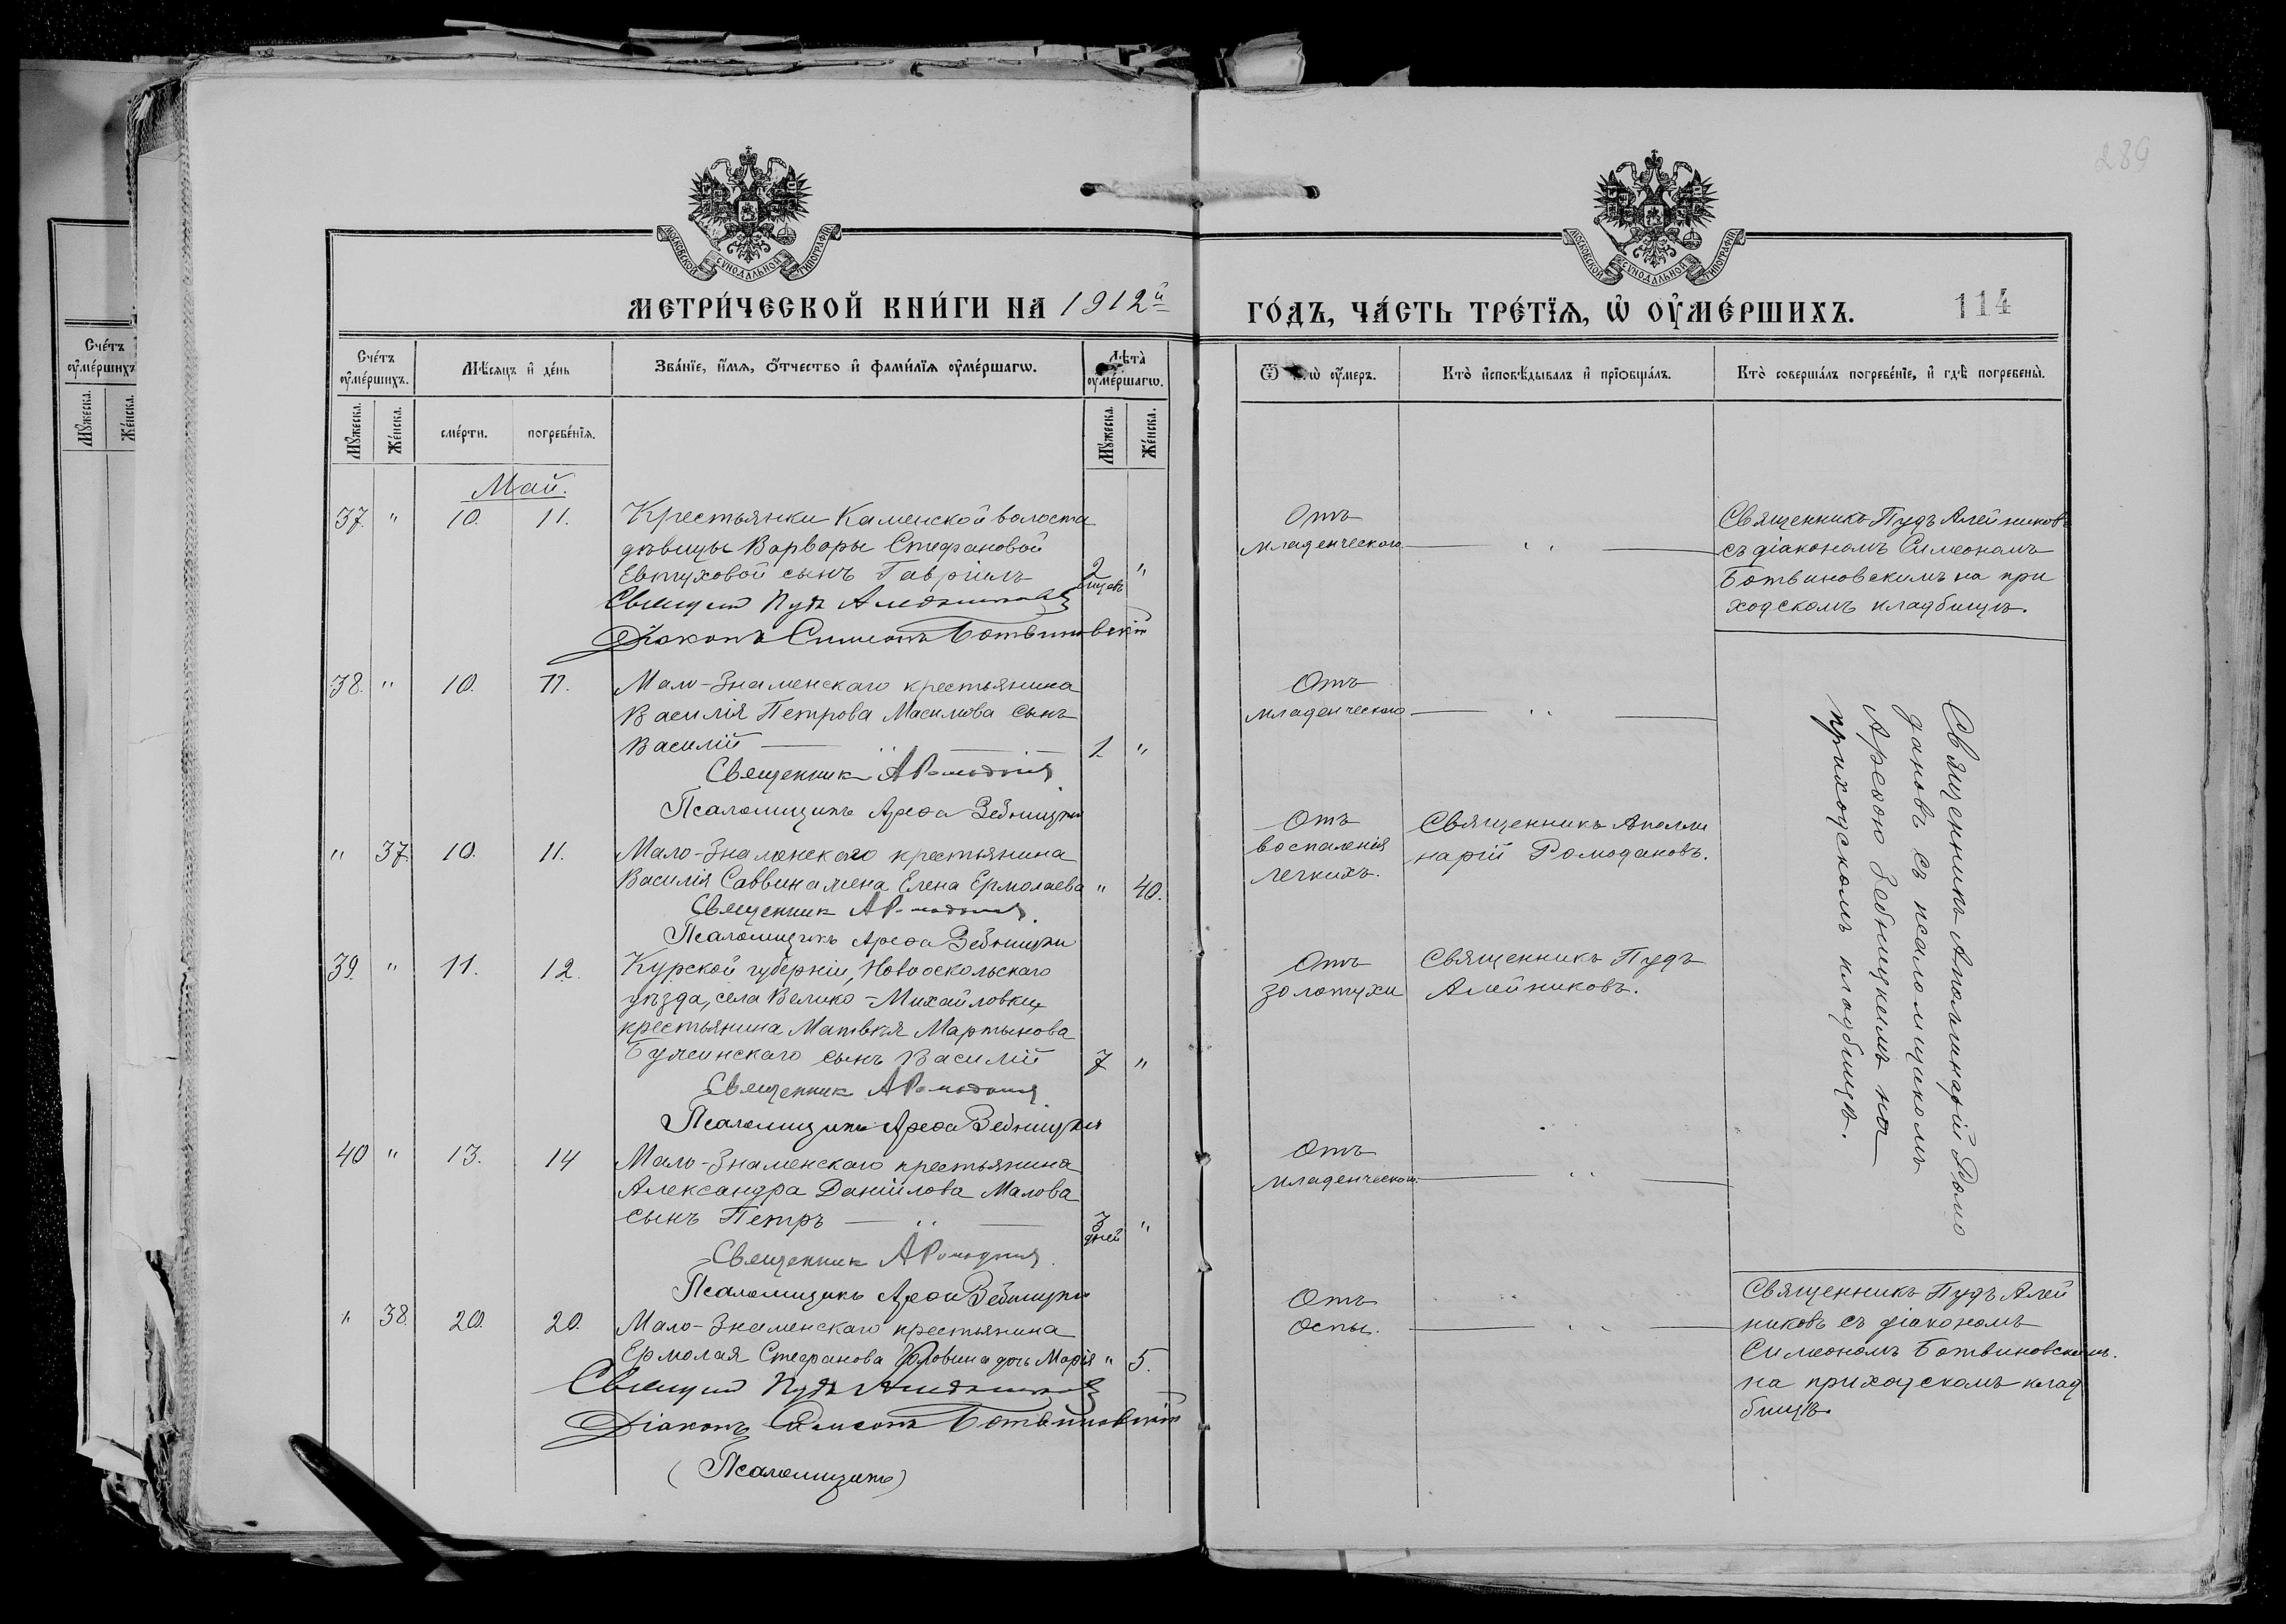 289
МОСКОВСКОЙ СУНОДАЛЬНОЙ ТИПОГРАФІИ
МОСКОВСКОЙ СУНОДАЛЬНОЙ ТИПОГРАФІИ
МЕТРИ́ЧЕСКОЙ КНИ́ГИ НА 1912й
ГО́ДЪ, ЧА́СТЬ ТРЕ́ТЇѦ, Ѡ҆ ОУ҆МЕ́РШИХЪ.
114
Сче́тъ оу҆ме́ршихъ.
Мѣ́сяцъ и҆ де́нь
Зва́нїе, и҆́мѧ, ѻ҆́тчество и҆ фами́лїѧ оу҆ме́ршагѡ.
Лѣта̀ оу҆ме́ршагѡ.
Ѿ оу҆́меръ.
Кто̀ и҆сповѣ́дывалъ и҆ прїѡбща́лъ.
Кто̀ соверша́лъ погребе́нїе, и҆ гдѣ̀ погребены̀.
Мꙋ́жеска.
Же́нска.
сме́рти.
погребе́нїѧ.
Мꙋ́жеска.
Же́нска.
Сче́тъ
оу҆ме́ршихъ
Мꙋ́жеска.
Же́нска.
Май.
37. " 10. 11. Крестьянки Каменской волости
дѣвицы Варвары Стефановой
Евтуховой сынъ Гавріилъ 2 мѣсяц. "
Священ Пудъ Алейников
Діаконъ Симеонъ Ботвиновскій
Отъ
младенческаго
Священникъ Пудъ Алейниковъ
съ діакономъ Симеономъ
Ботвиновскимъ на при
ходскомъ кладбищѣ.
38. " 10. 11. Мало-Знаменскаго крестьянина
Василія Петрова Масилова сынъ
Василій 1 "
Священник А Ромоданов
Псаломщикъ Арефа Зебницкій
Отъ
младенческаго
Священникъ Аполлинарій Ромо
дановъ съ псаломщикомъ
Арефою Зебницкимъ на
приходскомъ кладбищѣ.
" 37. 10. 11. Мало-Знаменскаго крестьянина
Василія Саввина жена Елена Ермолаева " 40.
Священник А Ромоданов
Псаломщикъ Арефа Зебницкій
Отъ
воспаленія
легкихъ.
Священникъ Аполли
нарій Ромодановъ.
39. " 11. 12. Курской губерніи, Новооскольскаго
уѣзда, села Велико-Михайловки,
крестьянина Матвѣя Мартынова
сынъ Василій 7 "
Священник А Ромоданов
Псаломщикъ Арефа Зебницкій
Отъ
золотухи
Священникъ Пудъ
Алейниковъ.
40 " 13. 14 Мало-Знаменскаго крестьянина
Александра Даніилова Малова
сынъ Петръ 3 дней "
Священник А Ромоданов
Псаломщикъ Арефа Зебницкій
Отъ
младенческаго.
" 38. 20. 20. Мало-Знаменскаго крестьянина
Ермолая Стефанова дочь Марія " 5.
Священ Пудъ Алейников
Діаконъ Симеонъ Ботвиновскій
(Псаломщикъ)
Отъ
Оспы.
Священникъ Пудъ Алей
никовъ съ діакономъ
Симеономъ Ботвиновскимъ.
на приходскомъ клад
бищѣ.